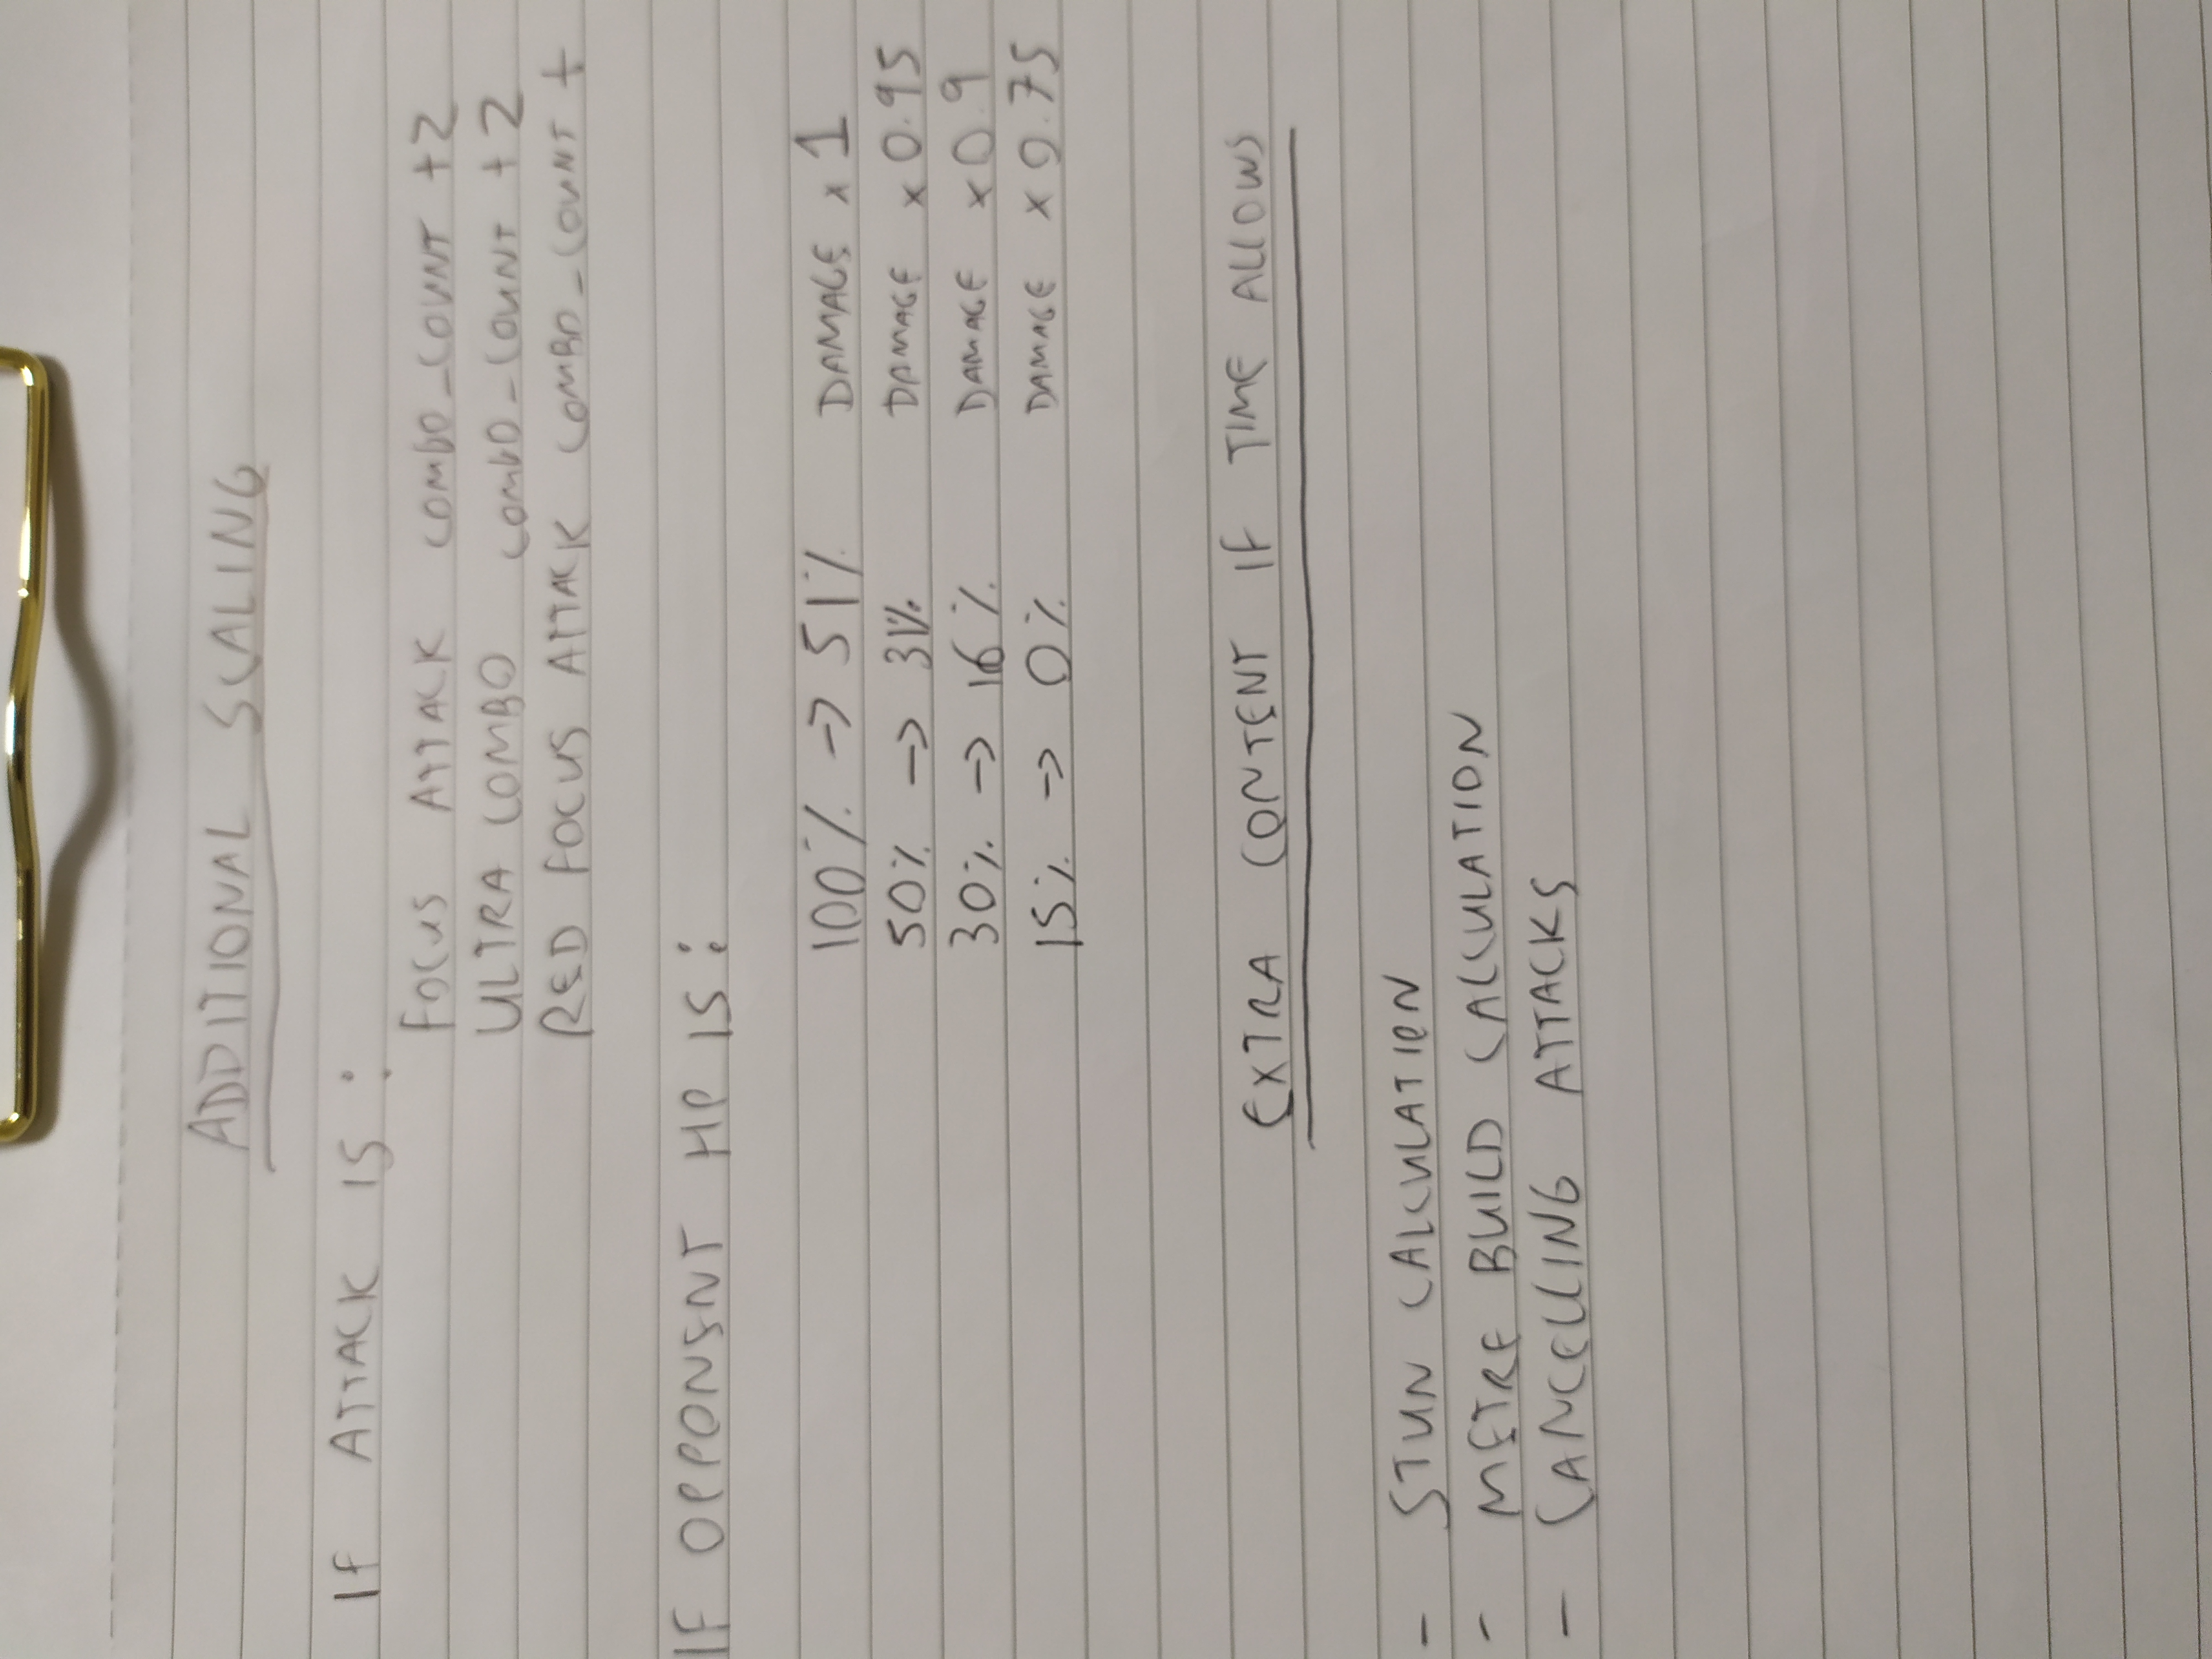 ADDITIONAL SCALING
IF ATTACK IS :
FOCUS ATTACK COMBO_COUNT +2
ULTRA COMBO COMBO_COUNT +2
RED FOCUS ATTACK COMBO_COUNT +
IF OPPONENT HP IS :
100% -> 51% DAMAGE x 1
50% -> 31% DAMAGE x 0.95
30% -> 16% DAMAGE x 0.9
15% -> 0% DAMAGE x 0.75
EXTRA CONTENT IF TIME ALLOWS
- STUN CALCULATION
- METRE BUILD CALCULATION
- CANCELLING ATTACKS